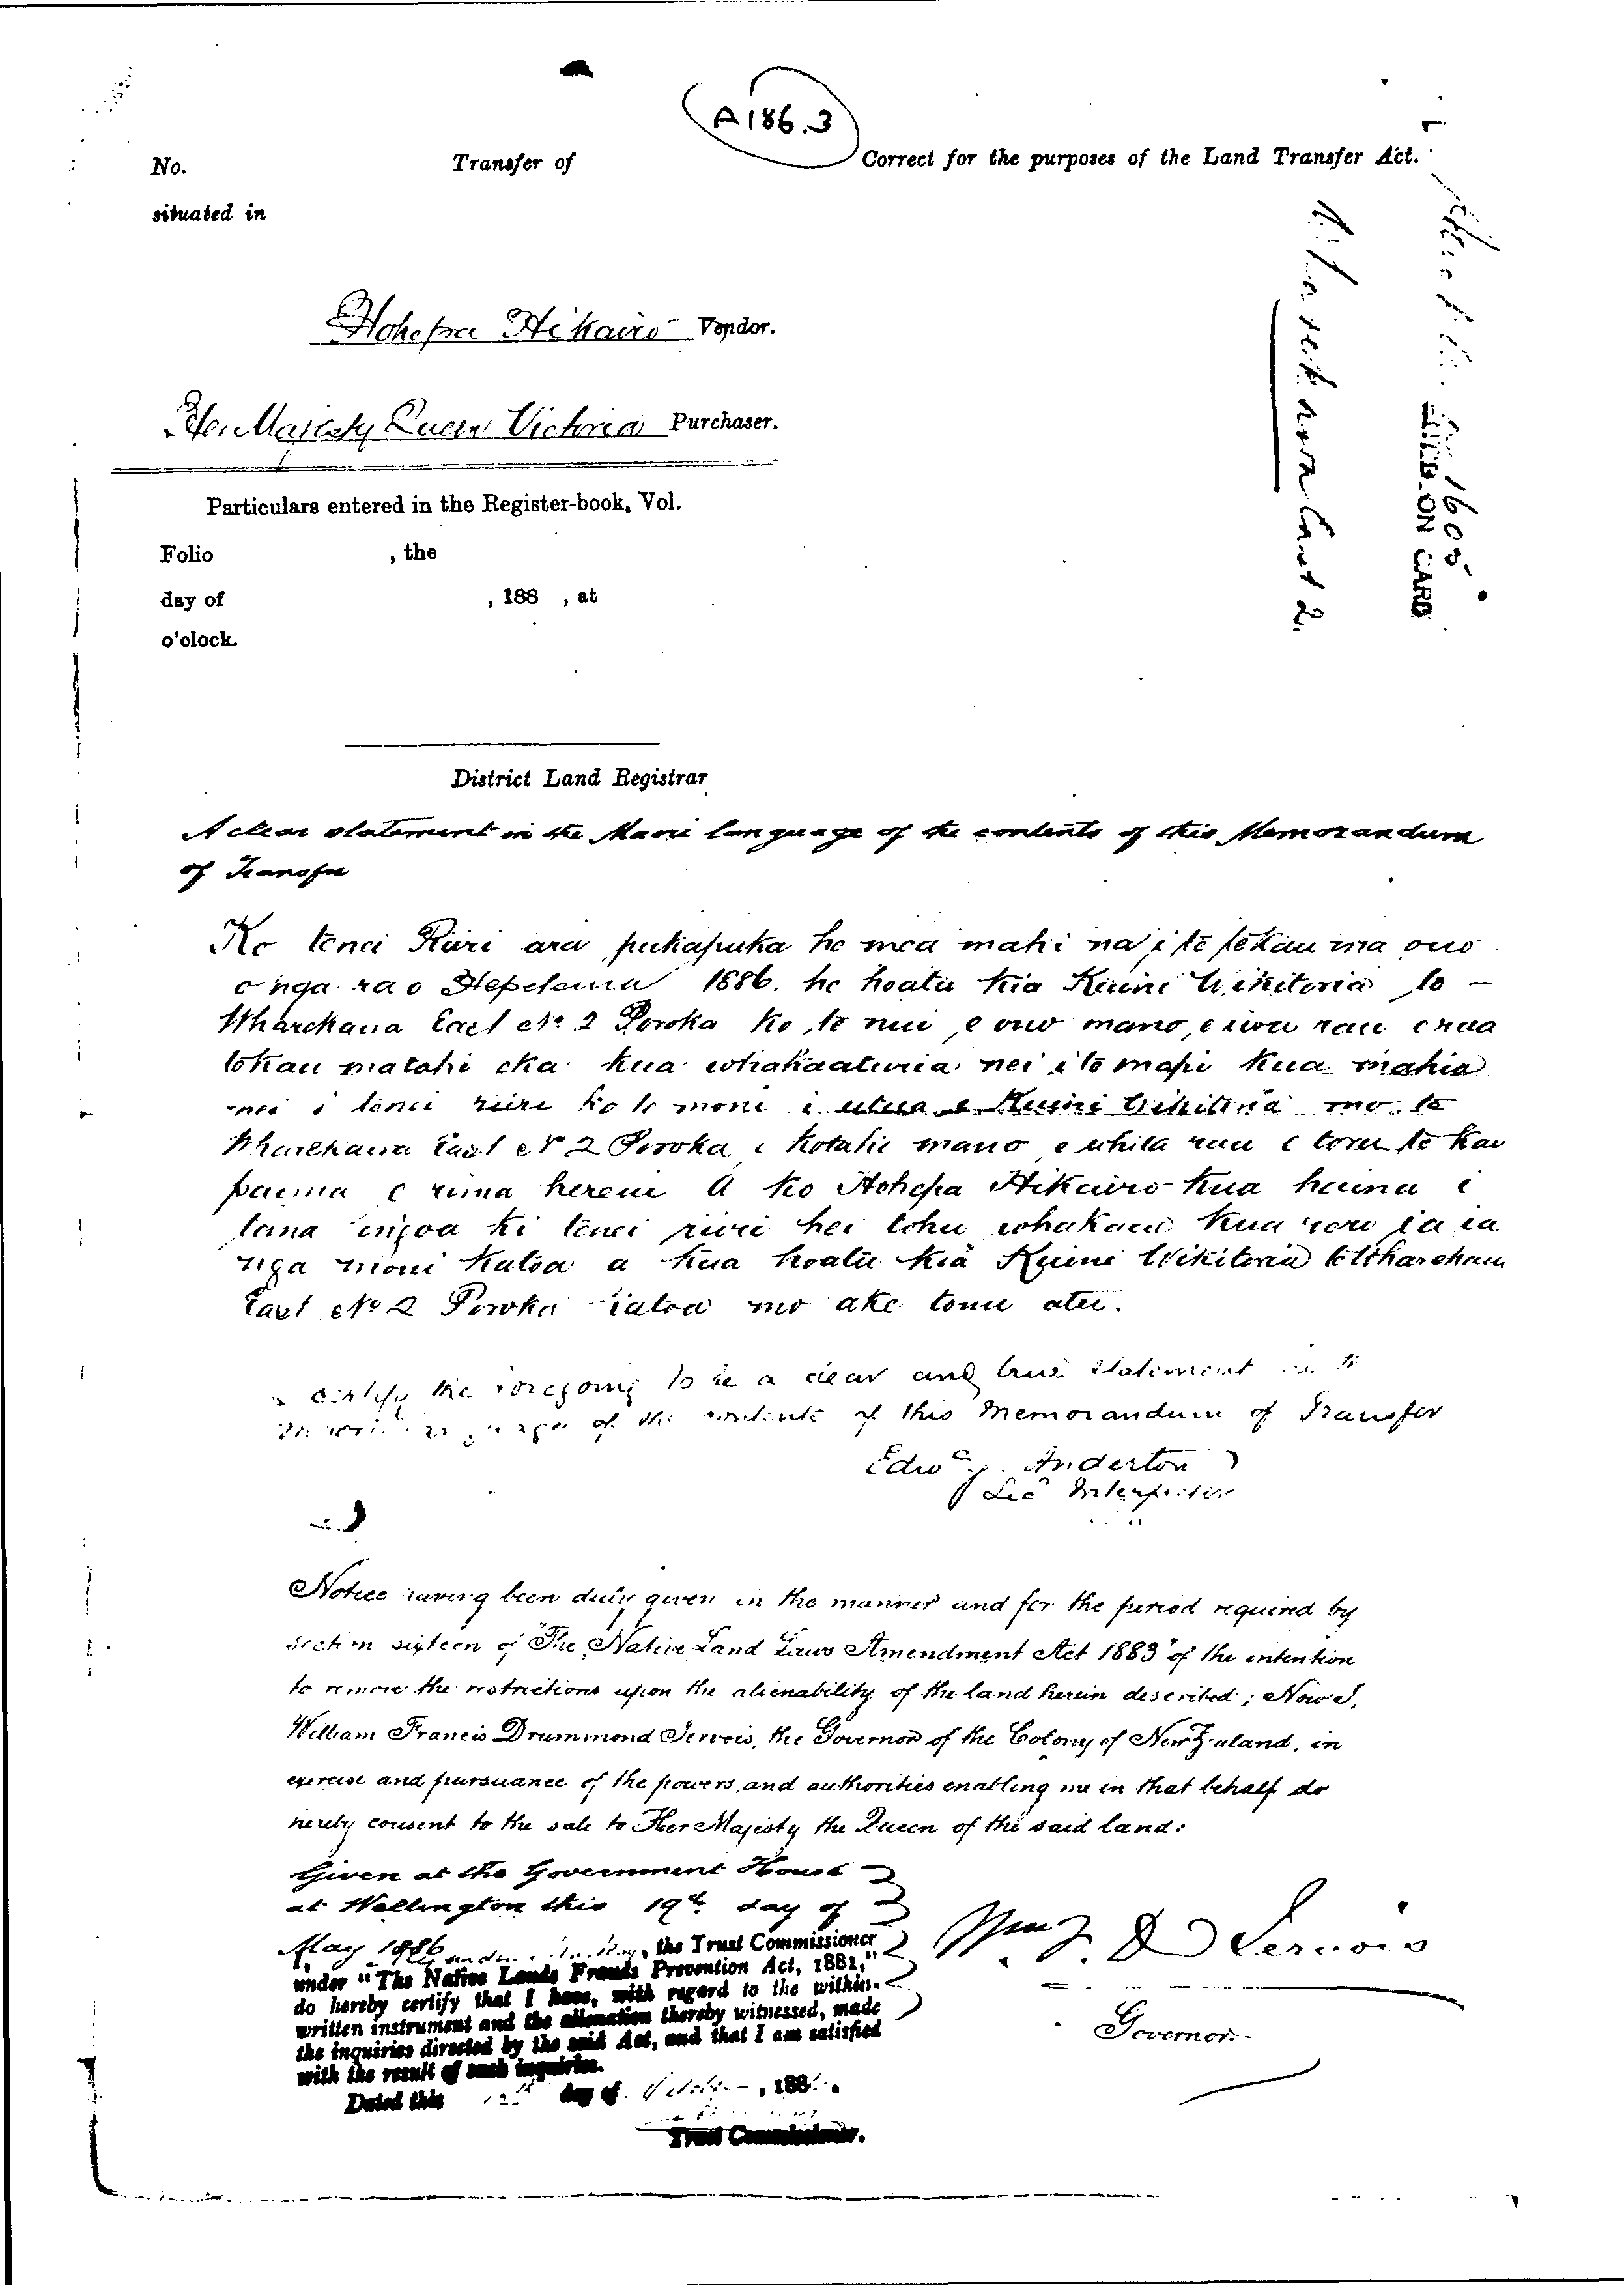 A186.3
No.
Transfer of
Correct for the purposes of the Land Transfer Act.
situated in
Hohepa Hikairo Vendor.
Her Majesty Queen Victoria Purchaser.
Particulars entered in the Register-book, Vol.
Folio , the
day of , 188 , at
o'clock.
District Land Registrar
Wharekawa East 2.
1605
ON CARD
A clear statement in the Maori language of the contents of this Memorandum
of Transfer
Ko tenei Riiri ara pukapuka he mea mahi na i te tekau ma ono
o nga ra o Hepetema 1886. he hoatu kia Kuini Wikitoria te
Wharekaua East No 2 Poroka ko te nui e ono mano, e iwa rau e rua
tekau matahi eka kua whakaaturia nei i te mapi kua mahia
nei i tenei riiri ko te moni i utua e Kuini Wikitoria mo te
Wharekaua East No 2 Poroka e kotahi mano e whita rau e toru te kau
pauna e rima hereni A ko Hohepa Hikairo kua haina i
tana ingoa ki tenei riiri hei tohu whakaae kua riro ia ia
nga moni katoa a kua hoatu kia Kuini Wikitoria te Wharekaua
East No 2 Poroka katoa mo ake tonu atu.
certify the foregoing to be a clear and true statement in the
of the contents of this Memorandum of Transfer
Edwd Anderton
Lic Interpreter
Notice having been duly given in the manner and for the period required by
section sixteen of "The Native Land Laws Amendment Act 1883" of the intention
to remove the restrictions upon the alienability of the land herein described; Now I,
William Francis Drummond Jervois, the Governor of the Colony of New Zealand, in
exercise and pursuance of the powers and authorities enabling me in that behalf do
hereby consent to the sale to Her Majesty the Queen of the said land:
Given at the Government House
at Wellington this 19th day of
May 1886
Wm F D Jervois
Governor
, the Trust Commissioner
under "The Native Lands Frauds Prevention Act, 1881,"
do hereby certify that I have, with regard to the within-
written instrument and the alienation thereby witnessed, made
the inquiries directed by the said Act, and that I am satisfied
with the result of such inquiries.
Dated this day of October, 188
Trust Commissioner.